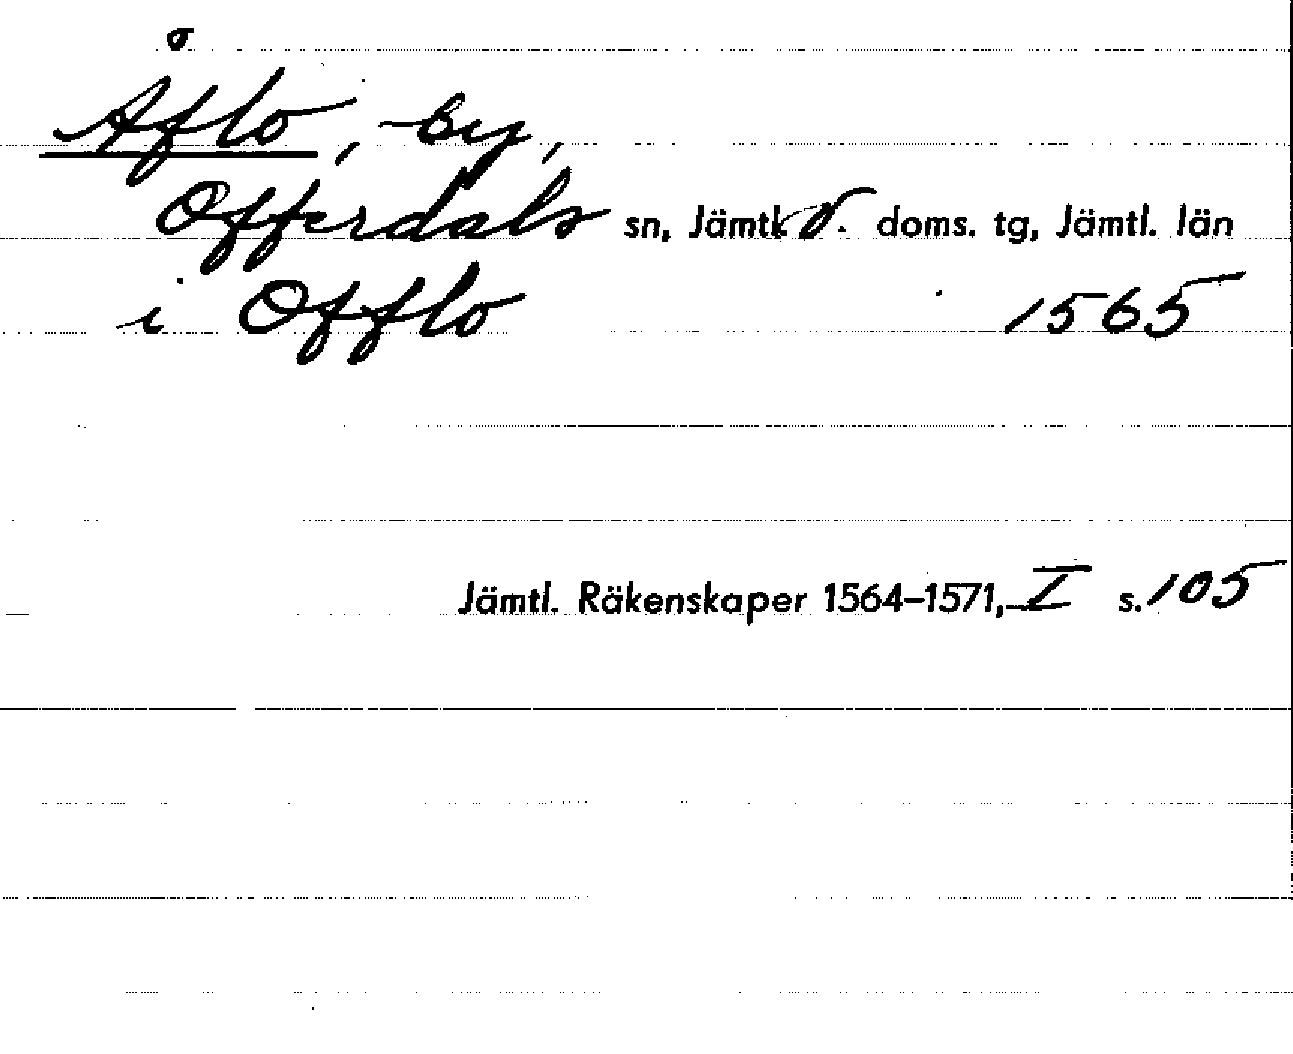 Åflo, by,
Offerdals sn, Jämtl. v. doms. tg, Jämtl. län
i Offlo 1565
Jämtl. Räkenskaper 1564–1571, I s. 105